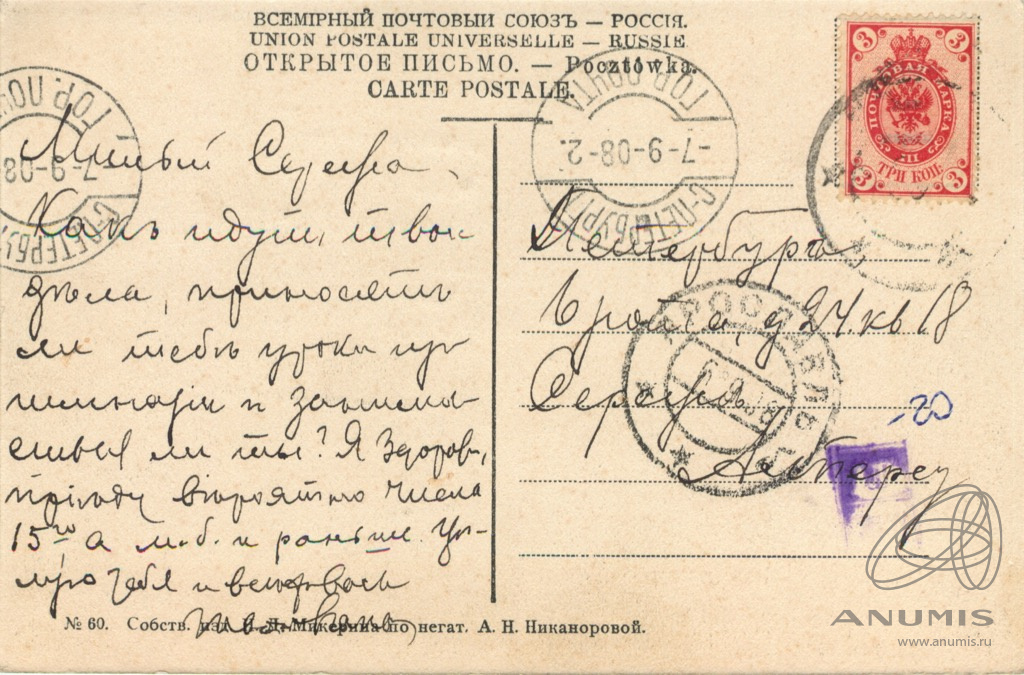 ВСЕМІРНЫЙ ПОЧТОВЫЙ СОЮЗЪ — РОССІЯ.
UNION POSTALE UNIVERSELLE — RUSSIE
ОТКРЫТОЕ ПИСЬМО. — Pocztówka.
CARTE POSTALE.
3 3
ПОЧТОВАЯ МАРКА
ТРИ КОП.
3 3
ГОР. ПОЧТА
-7-9-08-2.
С-ПЕТЕРБУРГЪ
ГОР. ПОЧ
7-9-08
С-ПЕТЕРБУ
Милый Сережа.
Какъ идутъ твои
дѣла, приносятъ
ли тебѣ уроки
и занима
ешься ли ты? Я здоровъ,
пріѣду вѣроятно числа
15го а м.б. и раньше. Цѣ-
лую тебя и всѣхъ васъ
Петербургъ
д 24 кв 18
Сергѣю
ЯРОСЛАВЛЬ
-20
№ 60. Собств. изд. И. Д. Микерина по негат. А. Н. Никаноровой.
ANUMIS
www.anumis.ru